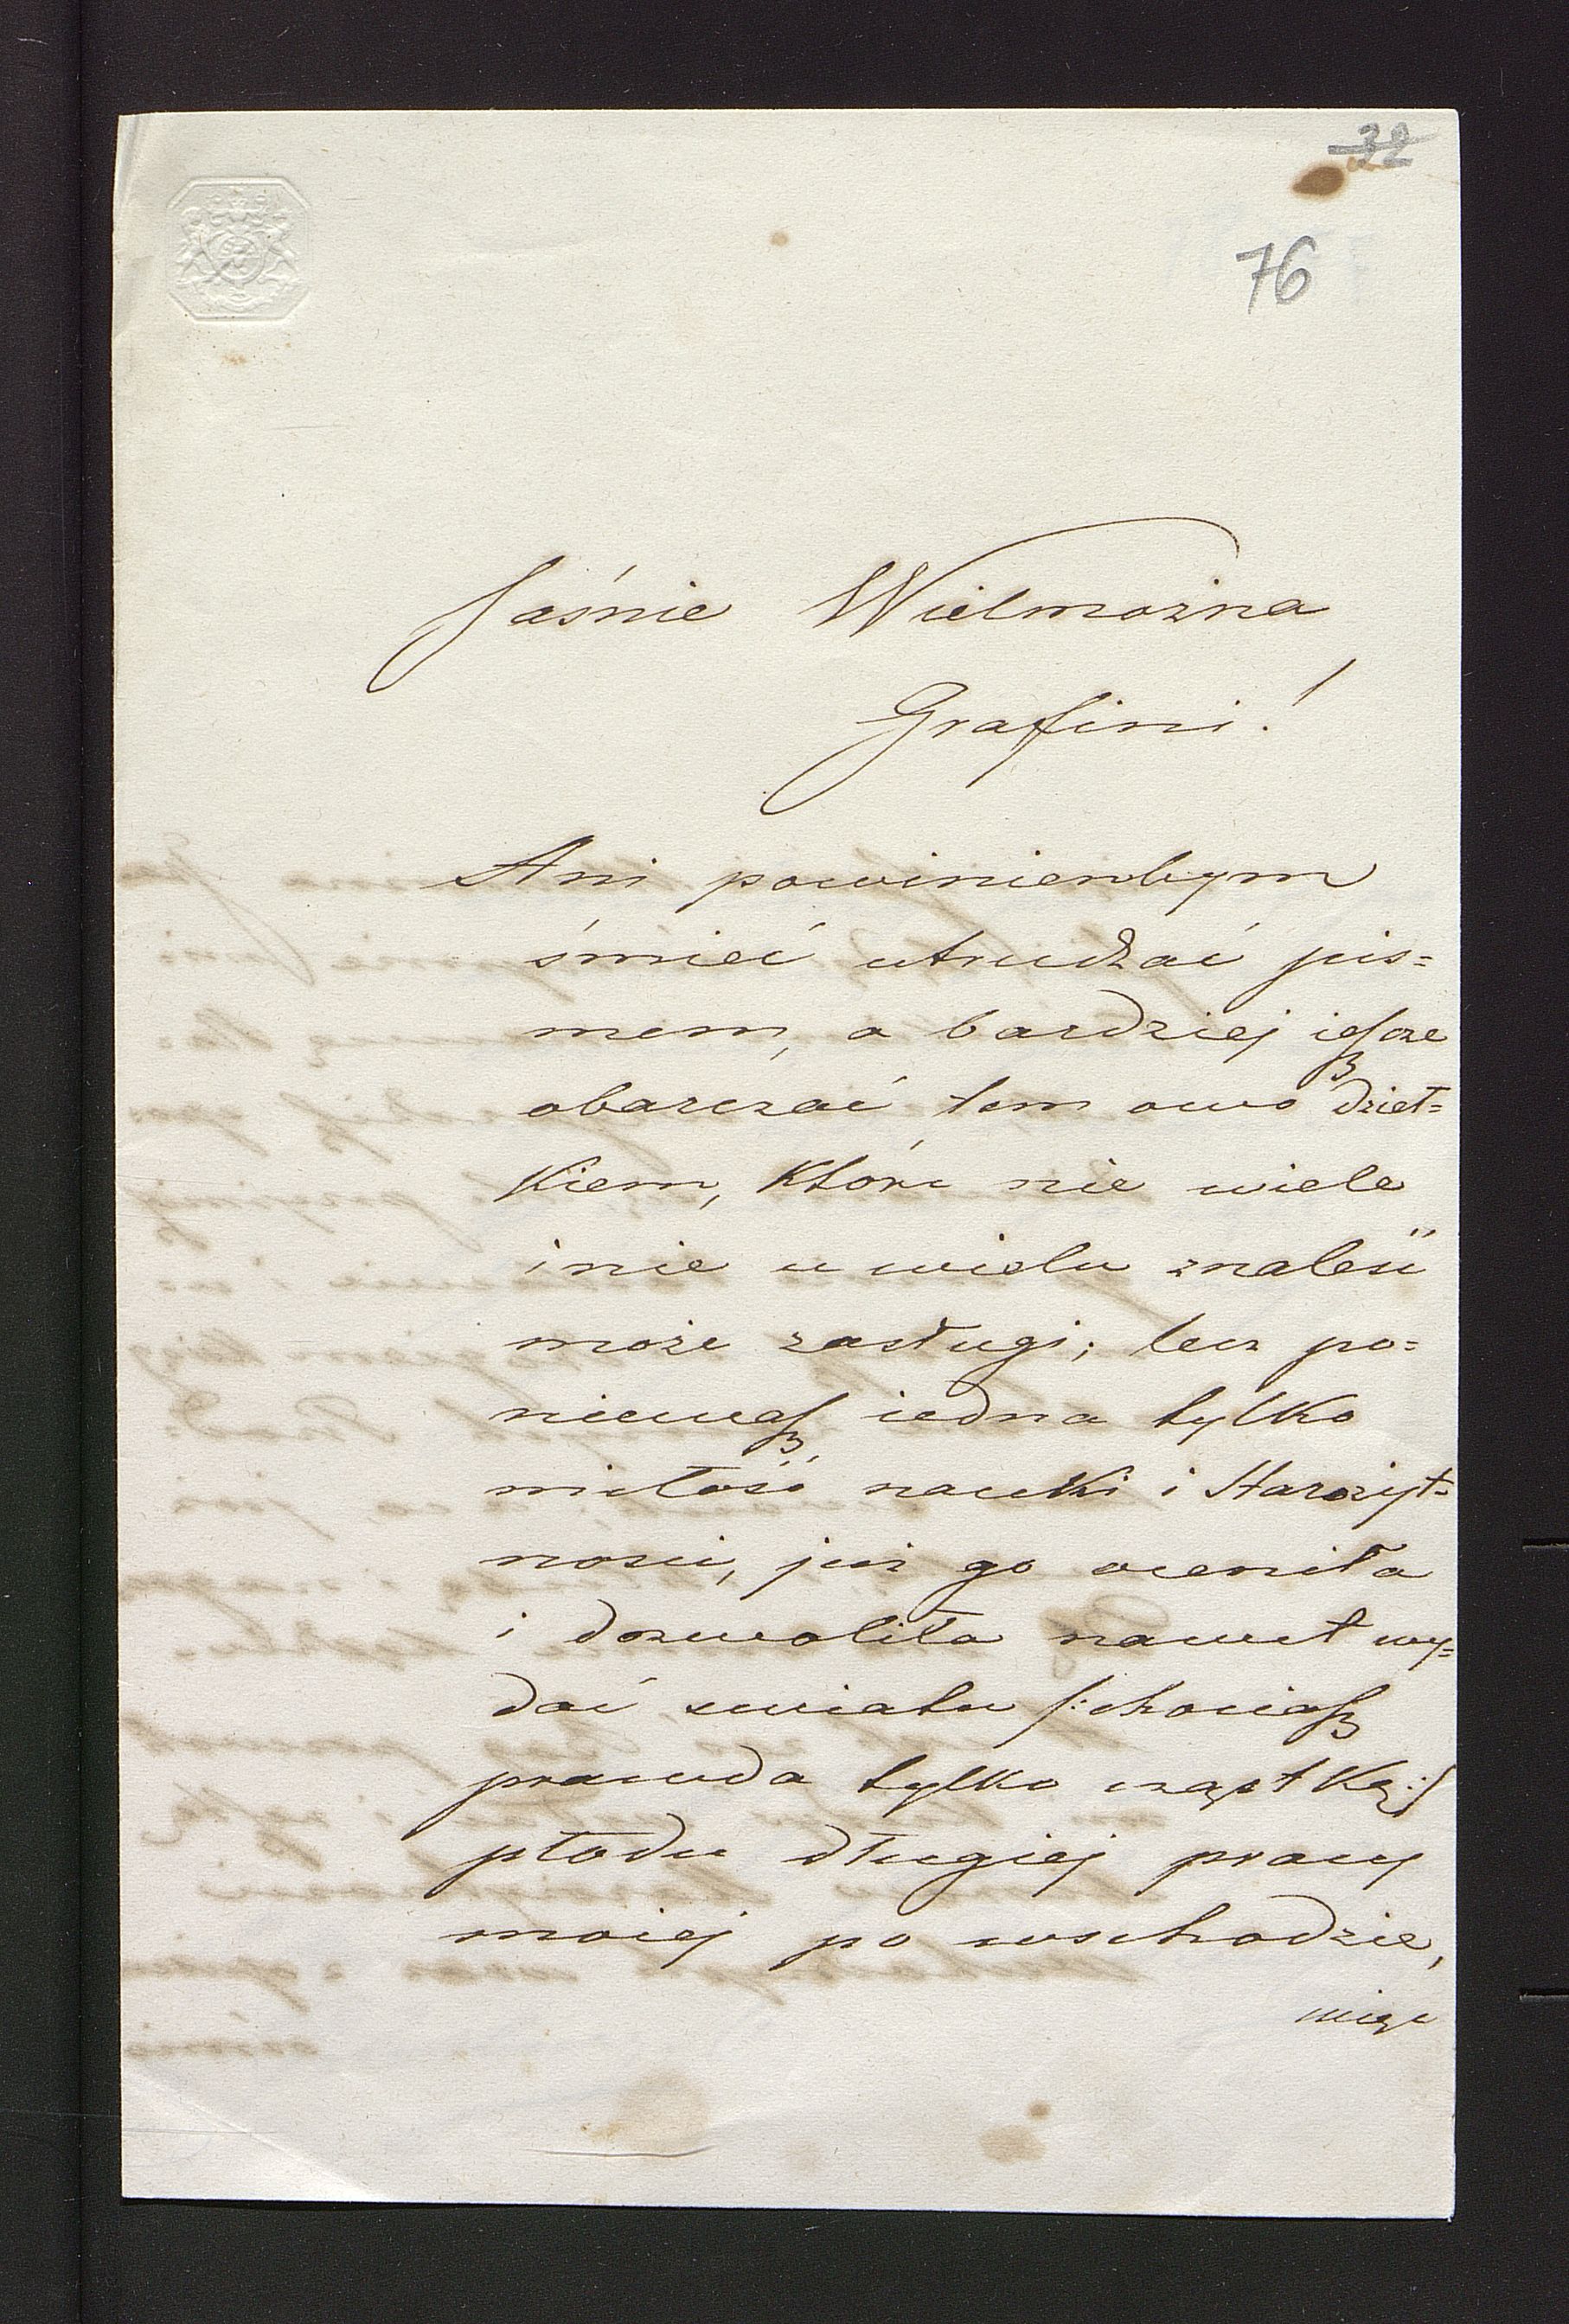 32
76
Jaśnie Wielmożna
Grafini!
Ani powinienbym
śmieć utrudzać pis=
mem, a bardziej ieszcze
obarczać tem owo dzieł=
kiem, które nie wiele
i nie u wielu znaleść
może zasługi; lecz po=
nieważ iedna tylko
miłość nauki i Starożyt=
ności, już go oceniła
i dozwoliła nawet wy=
dać światu /: chociasz
prawda tylko cząstkę :/
płodu długiej pracy
moiej po wschodzie,
więc